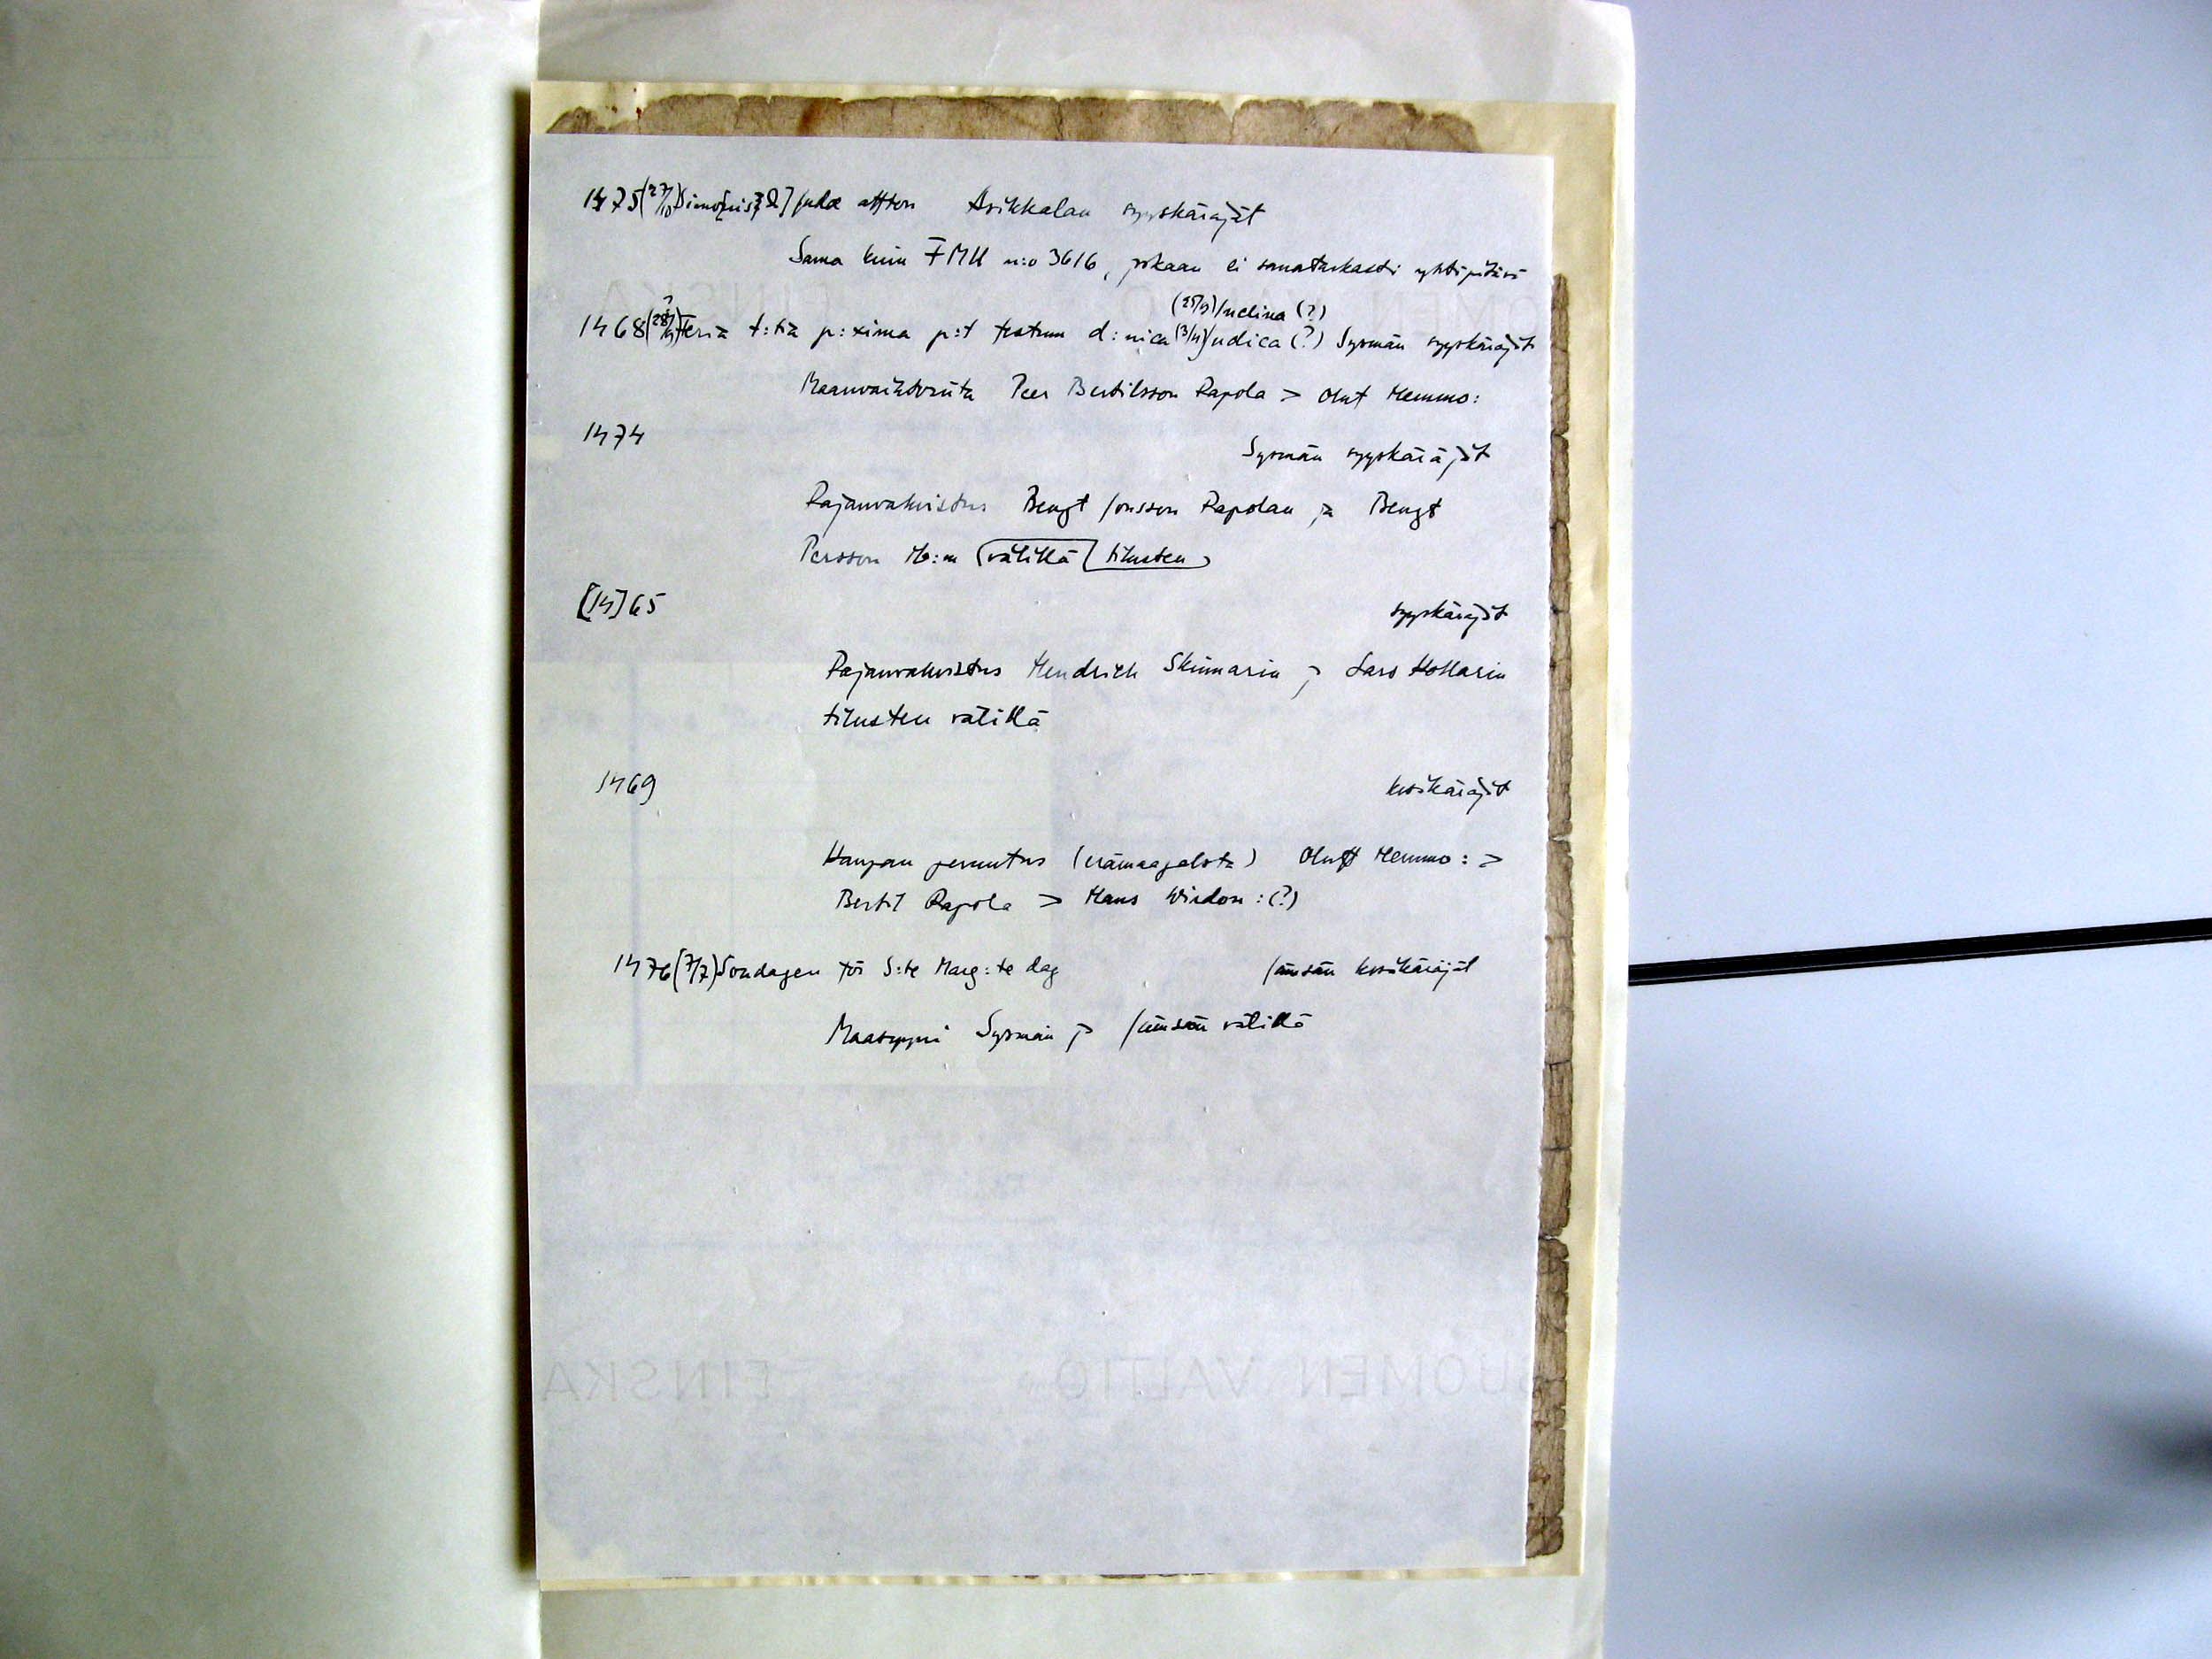 1475 (27/10) Simo[nis & ] Jude afton Asikkalan syyskäräjät
Sama kuin FMU n:o 3616, jokaan ei sanatarkasti yhtäpitävä
(25/9) Judica (?)
1468 feria t:tia p:xima p:t festum d:nica (3/4) Judica (?) Sysmän syyskäräjät
Maanvaihtoriita Peer Bertilsson Rapola > Oluf Hemmo:
1474
Sysmän syyskäräjät
Rajanvahvistus Bengt Jonsson Rapolan ja Bengt
Persson H:m välillä tilusten
[14]65 syyskäräjät
Rajanvahvistus Hendrich Skinnarin ja Lars Hollarin
tilusten välillä
1469 kesäkäräjät
Kaupan peruutus (erämaapalsta) Oluff Hemmo: >
Bertil Rapola > Hans Windon: (?)
1476 (7/7) Sondagen för S:te Marg:te dag Jämsän kesäkäräjät
Maasyyni Sysmän ja Jämsän välillä
SUOMEN VALTIO FINSKA